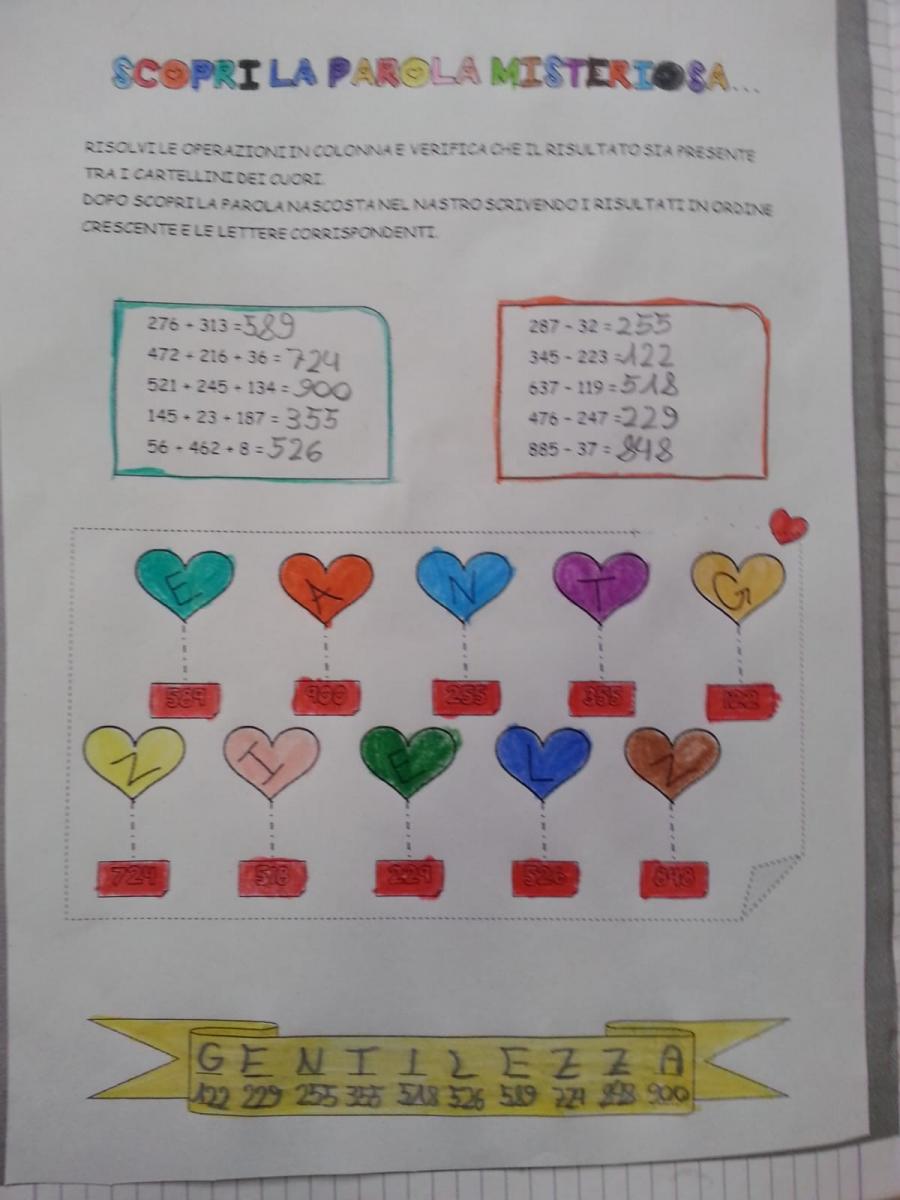 SCOPRI LA PAROLA MISTERIOSA...
RISOLVI LE OPERAZIONI IN COLONNA E VERIFICA CHE IL RISULTATO SIA PRESENTE
TRA I CARTELLINI DEI CUORI.
DOPO SCOPRI LA PAROLA NASCOSTA NEL NASTRO SCRIVENDO I RISULTATI IN ORDINE
CRESCENTE E LE LETTERE CORRISPONDENTI.
276 + 313 = 589
472 + 216 + 36 = 724
521 + 245 + 134 = 900
145 + 23 + 187 = 355
56 + 462 + 8 = 526
287 - 32 = 255
345 - 223 = 122
637 - 119 = 518
476 - 247 = 229
885 - 37 = 848
E A N T G
589 900 255 355 122
Z I E L Z
724 518 229 526 848
G E N T I L E Z Z A
122 229 255 355 518 526 589 724 848 900